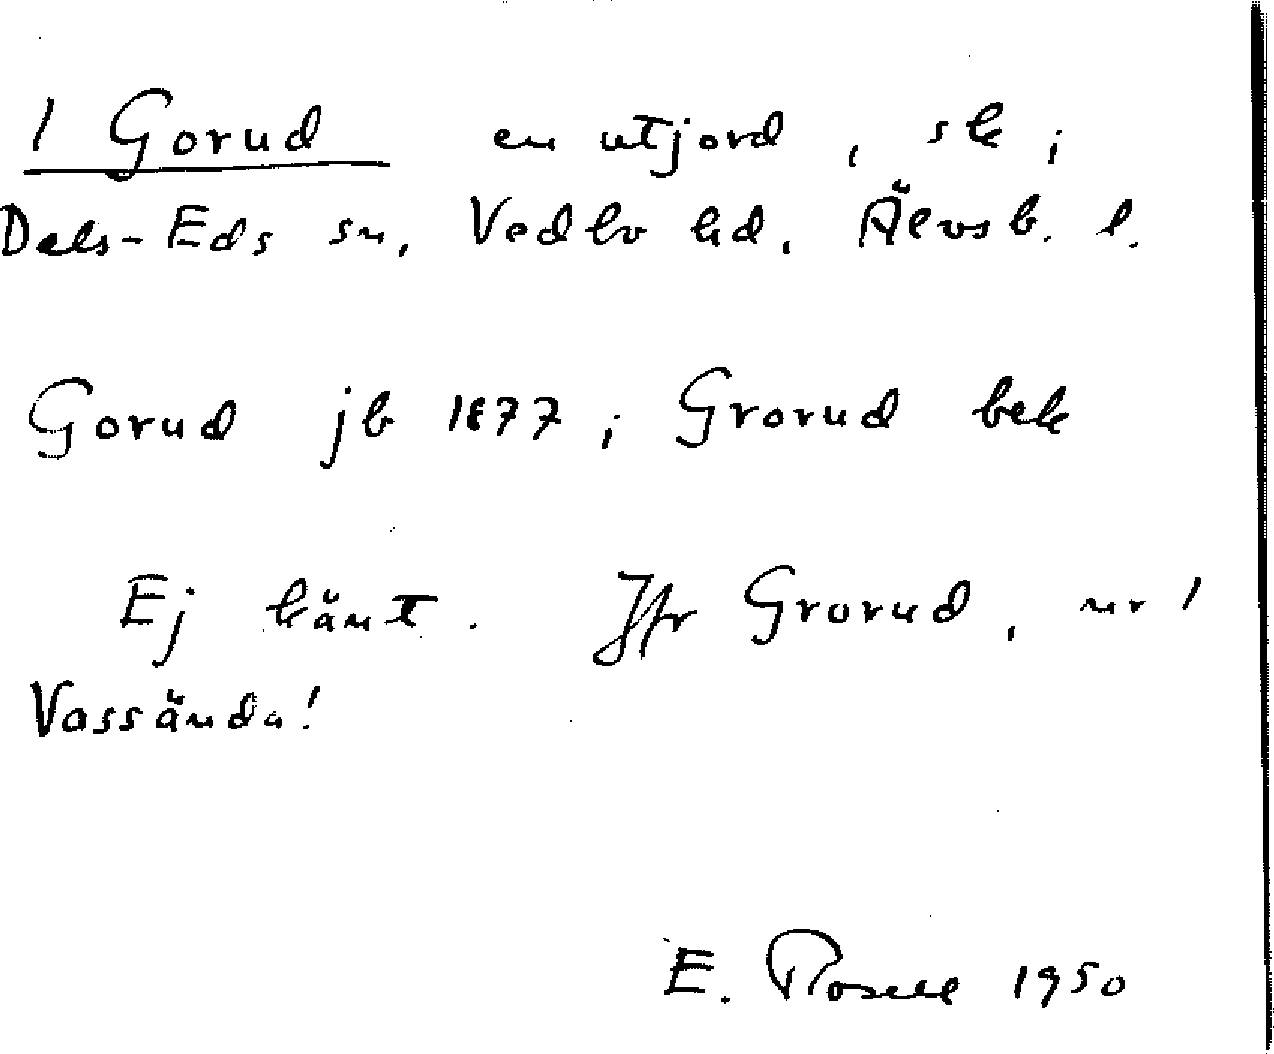 1 Gorud en utjord, sk i
Dals-Eds sn, Vedbo hd, Älvsb. l.
Gorud jb 1877; Grorud bek
Ej känt. Jfr Grorud, nr 1
Vassända!
E. Rosell 1950